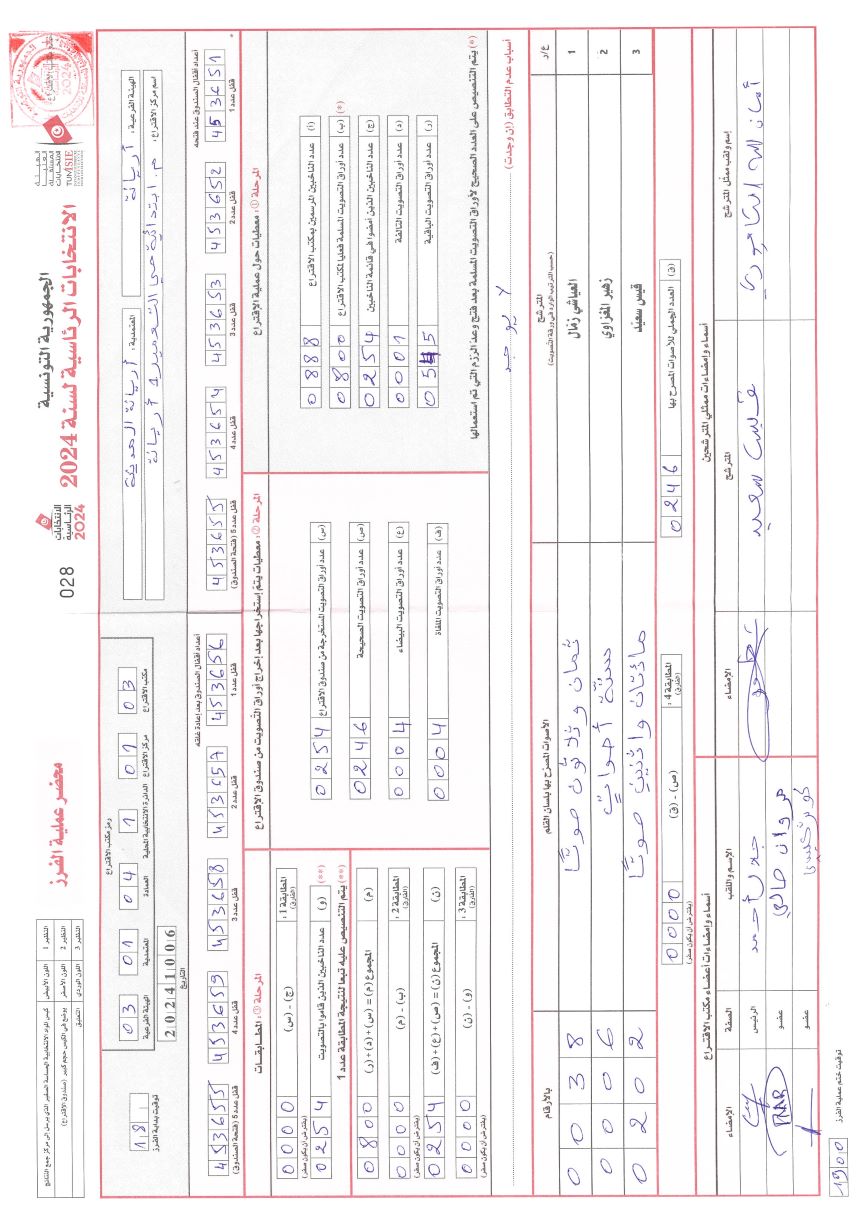 الجمهورية التونسية
الانتخابات الرئاسية لسنة 2024
الانتخابات
الرئاسية
2024
028
محضر عملية الفرز
النظير 1
اللون الأبيض
النظير 2
اللون الأصفر
يوضع في الكيس حجم كبير (صندوق الاقتراع)
النظير 3
اللون الوردي
التعليق
الهيئة الفرعية: أريانة
المعتمدية: أريانة المدينة
اسم مركز الاقتراع: م. ابتدائية حي التعمير أريانة
رمز مكتب الاقتراع
الهيئة الفرعية 03
المعتمدية 01
العمادة 04
الدائرة الانتخابية المحلية 1
مركز الاقتراع 01
مكتب الاقتراع 03
التاريخ
20241006
توقيت بداية الفرز
18
أعداد أقفال الصندوق عند فتحه
قفل عدد 1 453651
قفل عدد 2 453652
قفل عدد 3 453653
قفل عدد 4 453654
قفل عدد 5 (فتحة الصندوق) 453655
أعداد أقفال الصندوق بعد إعادة غلقه
قفل عدد 1 453656
قفل عدد 2 453657
قفل عدد 3 453658
قفل عدد 4 453659
قفل عدد 5 (فتحة الصندوق) 453655
المرحلة ①: معطيات حول عملية الاقتراع
(أ) عدد الناخبين المرسمين بمكتب الاقتراع 0888
(ب) عدد أوراق التصويت المسلمة فعليا لمكتب الاقتراع (*) 0800
(ج) عدد الناخبين الذين أمضوا في قائمة الناخبين 0254
(د) عدد أوراق التصويت التالفة 0001
(ر) عدد أوراق التصويت الباقية 0545
(*) يتم التنصيص على العدد الصحيح لأوراق التصويت المسلمة بعد فتح وعد الرزم التي تم استعمالها
المرحلة ②: معطيات يتم إستخراجها بعد إخراج أوراق التصويت من صندوق الإقتراع
(س) عدد أوراق التصويت المستخرجة من صندوق الاقتراع 0254
(ص) عدد أوراق التصويت الصحيحة 0246
(ع) عدد أوراق التصويت البيضاء 0004
(ف) عدد أوراق التصويت الملغاة 0004
المرحلة ③: المطابقات
المطابقة 1: (الفارق) (ج) - (س) 0000 (يفترض أن يكون صفر)
(و) عدد الناخبين الذين قاموا بالتصويت (**) 0254
(**) يتم التنصيص عليه تبعا لنتيجة المطابقة عدد 1
(م) المجموع (م) = (س) + (د) + (ر) 0800
المطابقة 2: (الفارق) (ب) - (م) 0000 (يفترض أن يكون صفر)
(ن) المجموع (ن) = (ص) + (ع) + (ف) 0254
المطابقة 3: (الفارق) (و) - (ن) 0000 (يفترض أن يكون صفر)
أسباب عدم التطابق (إن وجدت)
لا يوجد
ع/ر
المترشح
(حسب الترتيب الوارد في ورقة التصويت)
الأصوات المصرّح بها بلسان القلم
بالأرقام
1 العياشي زمال ثمان وثلاثون صوتا 0038
2 زهير المغزاوي ستة أصوات 0006
3 قيس سعيد مائتان واثنين صوتا 0202
(ق) العدد الجملي للأصوات المصرح بها 0246
المطابقة 4: (الفارق) (ص) - (ق) 0000 (يفترض أن يكون صفر)
أسماء وإمضاءات ممثلي المترشحين
إسم ولقب ممثل المترشح
المترشح
الإمضاء
قيس سعيد
أسماء وإمضاءات أعضاء مكتب الاقتراع
الإسم واللقب
الصفة
الإمضاء
الرئيس
عضو
عضو
توقيت ختم عملية الفرز
1900